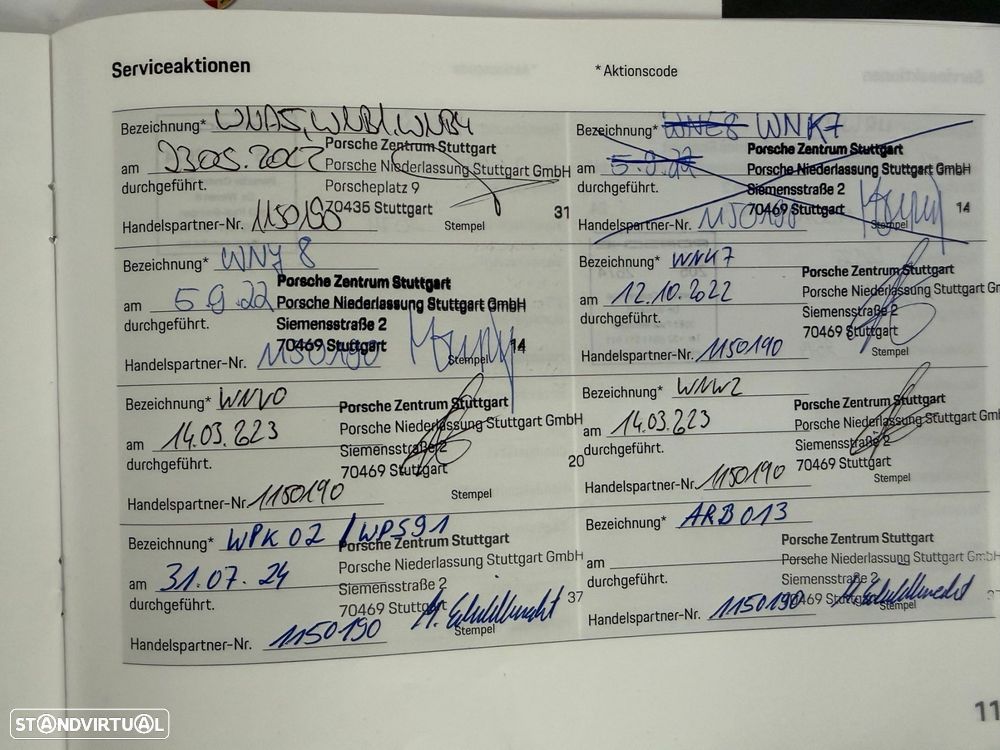 Serviceaktionen
* Aktionscode
Bezeichnung* WNA5, WNB1, WNB4
am 23.05.2022
durchgeführt.
Porsche Zentrum Stuttgart
Porsche Niederlassung Stuttgart GmbH
Porscheplatz 9
70435 Stuttgart
Handelspartner-Nr. 1150190
Stempel
31
Bezeichnung* WNE8 WNK7
am 5.9.22
durchgeführt.
Porsche Zentrum Stuttgart
Porsche Niederlassung Stuttgart GmbH
Siemensstraße 2
70469 Stuttgart
Handelspartner-Nr. 1150190
Stempel
14
Bezeichnung* WNJ8
am 5.9.22
durchgeführt.
Porsche Zentrum Stuttgart
Porsche Niederlassung Stuttgart GmbH
Siemensstraße 2
70469 Stuttgart
Handelspartner-Nr. 1150190
Stempel
14
Bezeichnung* WNK7
am 12.10.2022
durchgeführt.
Porsche Zentrum Stuttgart
Porsche Niederlassung Stuttgart G
Siemensstraße 2
70469 Stuttgart
Handelspartner-Nr. 1150190
Stempel
Bezeichnung* WNV0
am 14.03.223
durchgeführt.
Porsche Zentrum Stuttgart
Porsche Niederlassung Stuttgart GmbH
Siemensstraße 2
70469 Stuttgart
Handelspartner-Nr. 1150190
Stempel
20
Bezeichnung* WNW2
am 14.03.223
durchgeführt.
Porsche Zentrum Stuttgart
Porsche Niederlassung Stuttgart GmbH
Siemensstraße 2
70469 Stuttgart
Handelspartner-Nr. 1150190
Stempel
Bezeichnung* WPK02 / WPS91
am 31.07.24
durchgeführt.
Porsche Zentrum Stuttgart
Porsche Niederlassung Stuttgart GmbH
Siemensstraße 2
70469 Stuttgart
Handelspartner-Nr. 1150190
Stempel
37
Bezeichnung* ARB013
am
durchgeführt.
Porsche Zentrum Stuttgart
Porsche Niederlassung Stuttgart GmbH
Siemensstraße 2
70469 Stuttgart
Handelspartner-Nr. 1150190
Stempel
37
11
STANDVIRTUAL